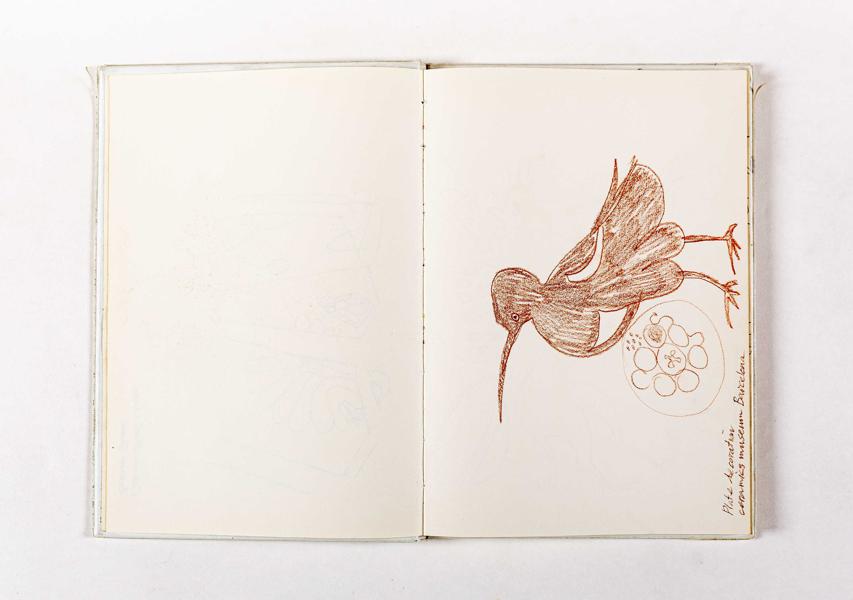 Plate decoration
ceramics museum Barcelona